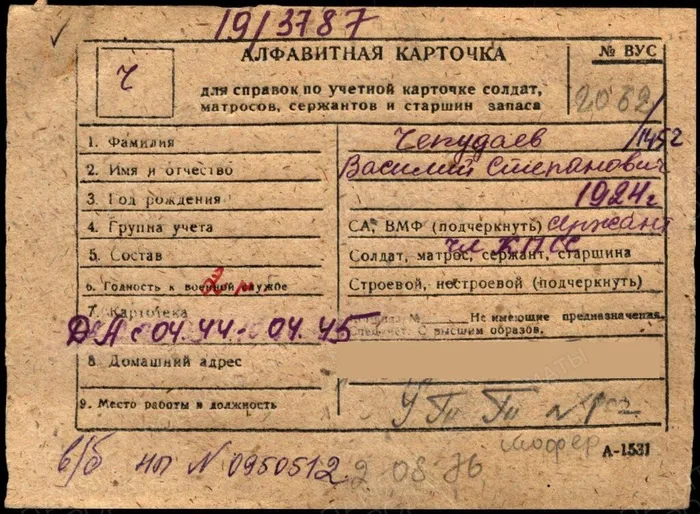 19/3787
АЛФАВИТНАЯ КАРТОЧКА
№ ВУС
Ч
для справок по учетной карточке солдат,
матросов, сержантов и старшин запаса
2062/
1. Фамилия Чепудаев /1452
2. Имя и отчество Василий Степанович
3. Год рождения 1924 г
4. Группа учета СА, ВМФ (подчеркнуть) сержант
чл КПСС
5. Состав Солдат, матрос, сержант, старшина
6. Годность к военной службе Строевой, нестроевой (подчеркнуть)
7. Картотека № Не имеющие предназначения.
ДА с 04.44 - 04.45 С высшим образов.
8. Домашний адрес
9. Место работы и должность
шофер
А-1531
в/б НП N 0950512 2 08 76